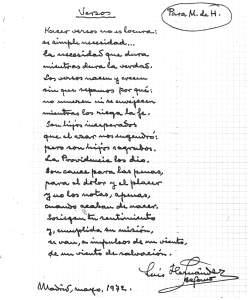 Versos
Para M. de H.
Hacer versos no es locura:
es simple necesidad...
La necesidad que dura
mientras dura la verdad.
Los versos nacen y crecen
sin que sepamos por qué:
no mueren ni se envejecen
mientras los riega la fe.
Son hijos inesperados
que el azar nos engendró:
pero son hijos sagrados.
La Providencia los dio.
Son cauce para las penas,
para el dolor y el placer
y no los notas, apenas,
cuando acaban de nacer.
Sosiegan tu sentimiento
y, cumplida su misión,
se van, a impulsos de un viento,
de un viento de salvación.
Luis Hernández
Madrid, mayo, 1972.